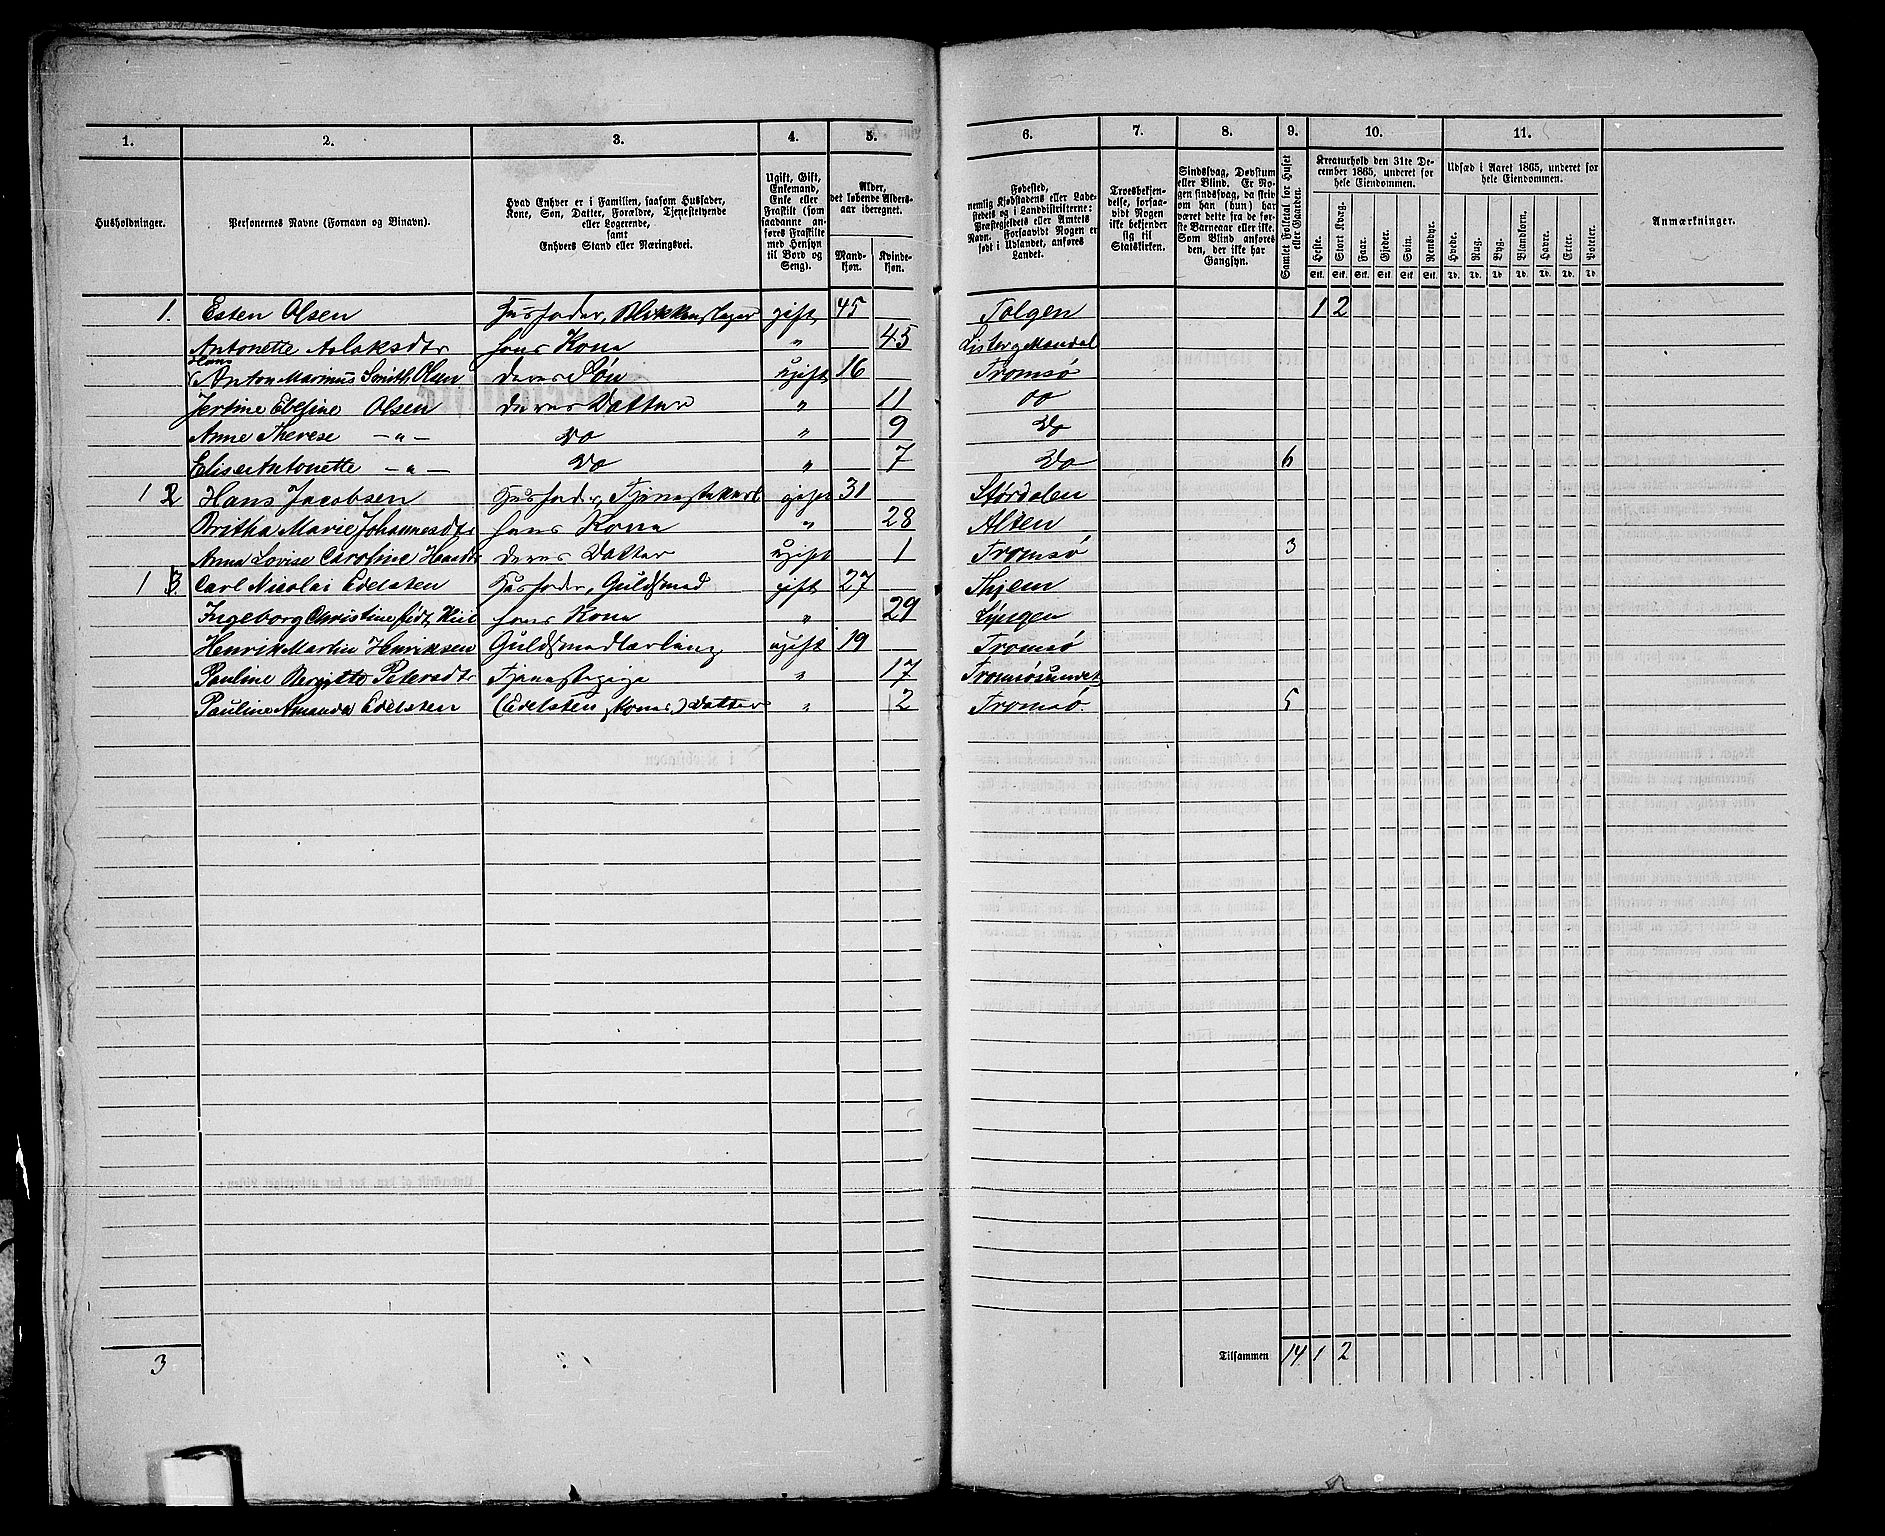 1. 2. 3. 4. 5. 6. 7. 8. 9. 10. 11.
Husholdninger.
Personernes Navne (Fornavn og Binavn).
Hvad Enhver er i Familien, saasom Husfader,
Kone, Søn, Datter, Forældre, Tjenestetyende
eller Logerende,
samt
Enhvers Stand eller Næringsvei.
Ugift, Gift,
Enkemand,
Enke eller
Fraskilt (som
saadanne an-
føres Fraskilte
med Hensyn
til Bord og
Seng).
Alder,
det løbende Alders-
aar iberegnet.
Mand-
kjøn.
Kvinde-
kjøn.
Fødested,
nemlig Kjøbstadens eller Lade-
stedets og i Landdistrikterne:
Præstegjeldets eller Amtets
Navn. Forsaavidt Nogen er
født i Udlandet, anføres
Landet.
Troesbekjen-
delse, forsaa-
vidt Nogen
ikke bekjender
sig til
Statskirken.
Sindssvag, Døvstum
eller Blind. Er No-
gen sindssvag, da skriv
om han (hun) har
været dette fra de før-
ste Barneaar eller ikke.
Som Blind anføres
den, der ikke har
Gangsyn.
Samlet Folketal for Huset
eller Gaarden.
Kreaturhold den 31te De-
cember 1865, underet for
hele Eiendommen.
Heste. Stort Kvæg. Faar. Gjeder. Svin. Rensdyr.
Stk. Stk. Stk. Stk. Stk. Stk.
Udsæd i Aaret 1865, underet for
hele Eiendommen.
Hvede. Rug. Byg. Blandkorn. Havre. Erter. Poteter.
Td. Td. Td. Td. Td. Td. Td.
Anmærkninger.
1. Esten Olsen Husfader, Blikkenslager gift 45 Tolgen 1 2
Antonette Aslaksdtr hans Kone " 45 Lister og Mandal
Hans
Anton Marinus Smith Olsen deres Søn ugift 16 Tromsø
Jertine Olsen deres Datter " 11 Do
Anne Therese —"— Do " 9 Do
Elise Antonette —"— Do " 7 Do 6
1 2 Hans Jacobsen Husfader, Tjenestekarl gift 31 Størdalen
Britha Marie Johannesdtr hans Kone " 28 Alten
Anna Lovise Caroline Hansdtr deres Datter ugift 1 Tromsø 3
1 3. Carl Nicolai Edelsten Husfader, Guldsmed gift 27
Ingeborg Christine hans Kone " 29 Lyngen
Henrik Martin Henriksen Guldsmedlærling ugift 19 Tromsø
Pauline Bergitte Petersdtr Tjenestepige " 17 Tromsøsundet
Pauline Amanda Edelsten (Edelsten, Kones) Datter " 2 Tromsø. 5
3 Tilsammen 14 1 2